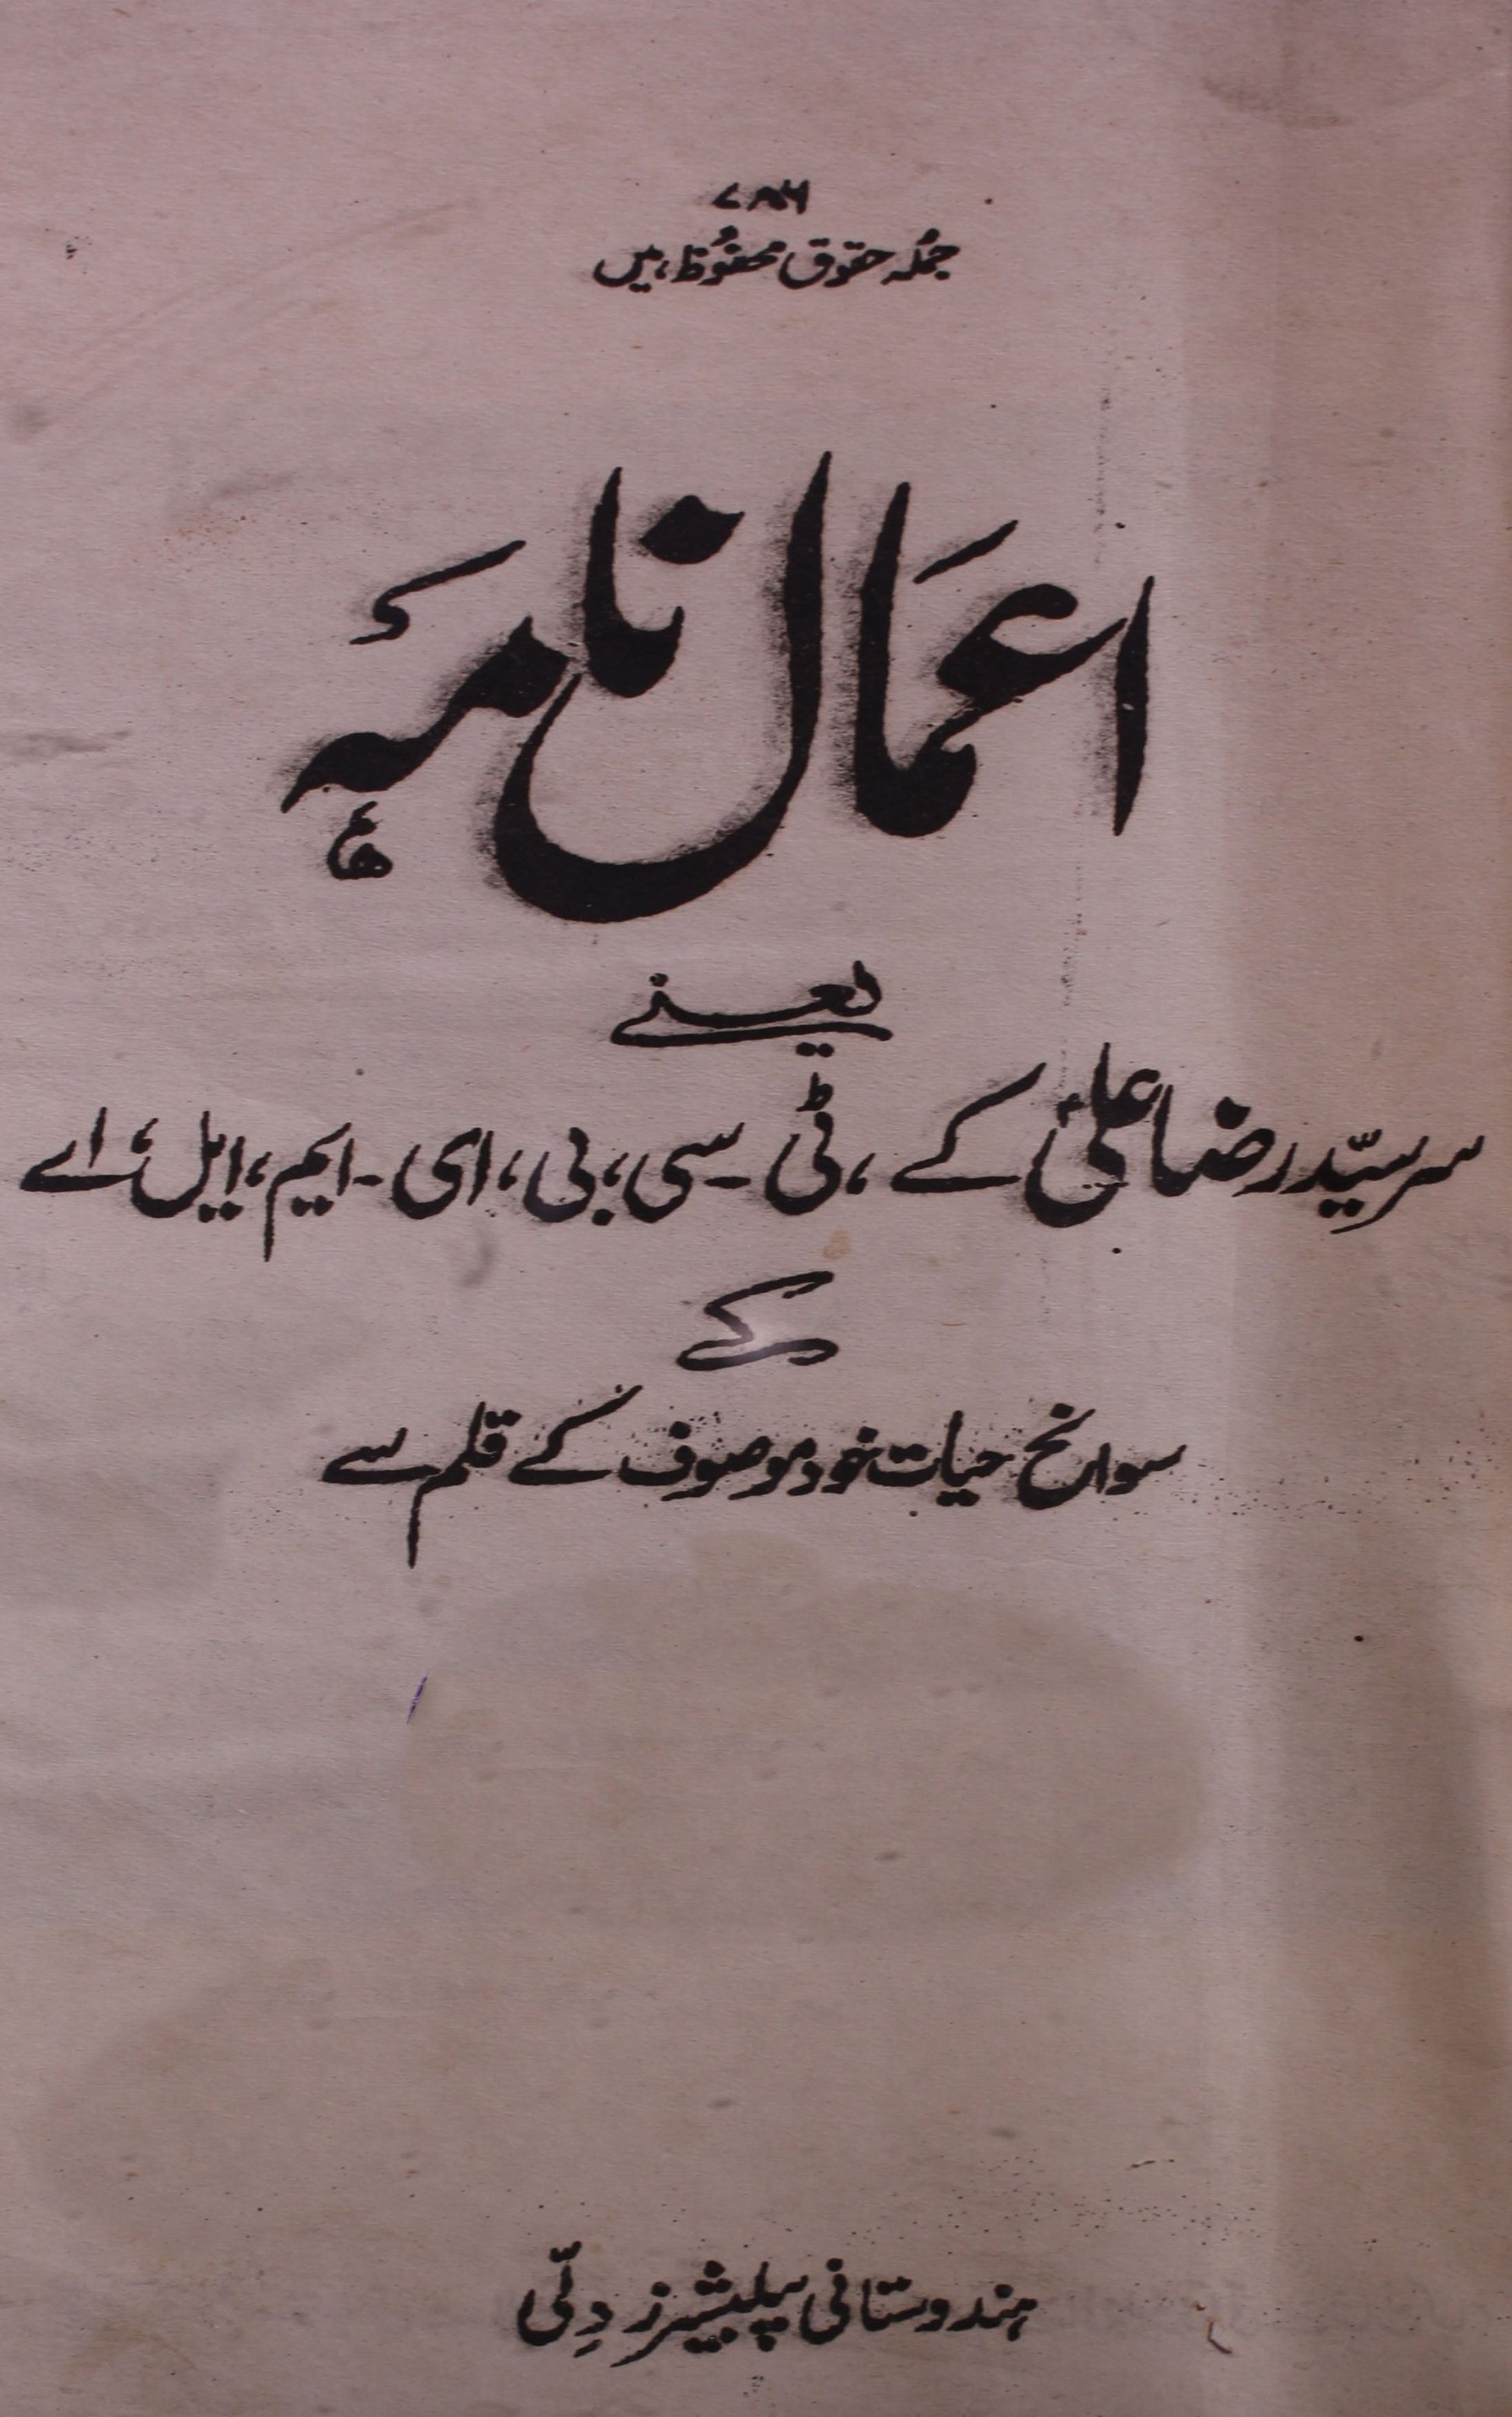 ۷۸۶
جُملہ حقوق محفُوظ ہیں
اعمَال نامَۂ
یعنے
سر سیّد رضا علی کے، ٹی۔ سی، بی، ای۔ ایم، ایل، اے
کے
سوانح حیات خود موصوف کے قلم سے
ہندوستانی پبلیشرز دِلّی